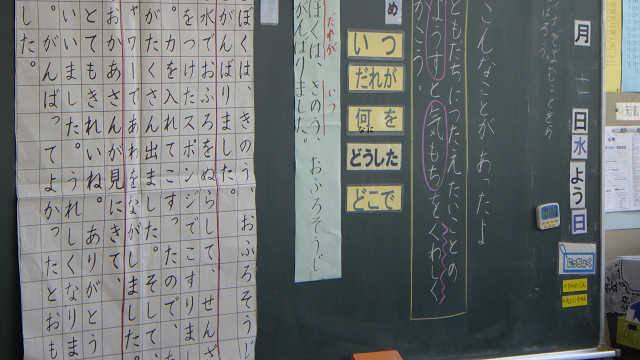 月
日
水
よう
日
こんなことが あったよ
ともだちにつたえたいことの
ようすと気もちをくわしく
かこう。
め
いつ
だれが
何を
なに
どうした
どこで
だれが
いつ
ぼくは、きのう、おふろそうじ
がんばりました。
ぼくは、きのう、おふろそうじ
がんばりました。
水でおふろをぬらして、せんざ
をつけたスポンジでこすりまし
。力を入れてこすったので、
がたくさん出ました。そして、
ャワーであわをながしました。
おかあさんが見にきて、
とてもきれいね。ありがとう
いいました。うれしくなりま
。がんばってよかったとおも
した。